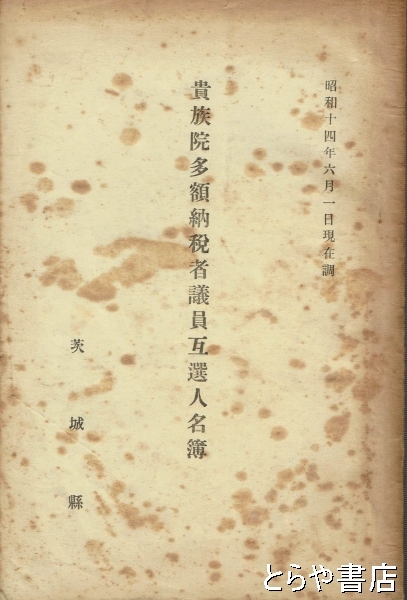 昭和十四年六月一日現在調
貴族院多額納税者議員互選人名簿
茨城縣
とらや書店